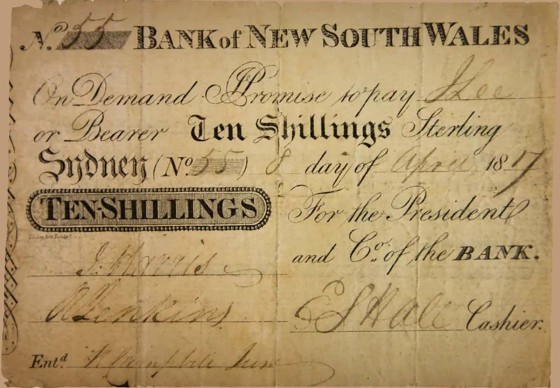 No. 55 BANK of NEW SOUTH WALES
On Demand Promise to pay J Lee
or Bearer Ten Shillings Sterling
Sydney (No 55) 8 day of April 1817
TEN-SHILLINGS For the President
and Cos. of the BANK.
J Harris
R Jenkins E S Hall Cashier.
Entd. R Campbell Junr